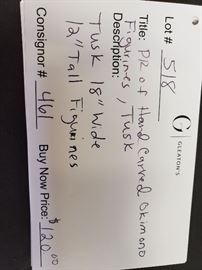 G
GLEATON'S
Lot # 518
Title: PR of Hand Carved Okimono
Figurines, Tusk
Description:
Tusk 18" Wide
12" Tall Figurines
Consignor # 461
Buy Now Price: $120.00